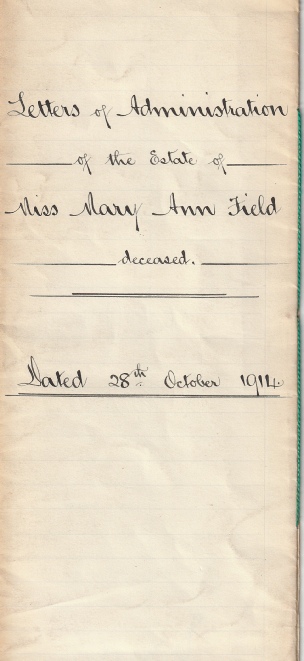 Letters of Administration
of the Estate of
Miss Mary Ann Field
deceased.
Dated 28th October 1914